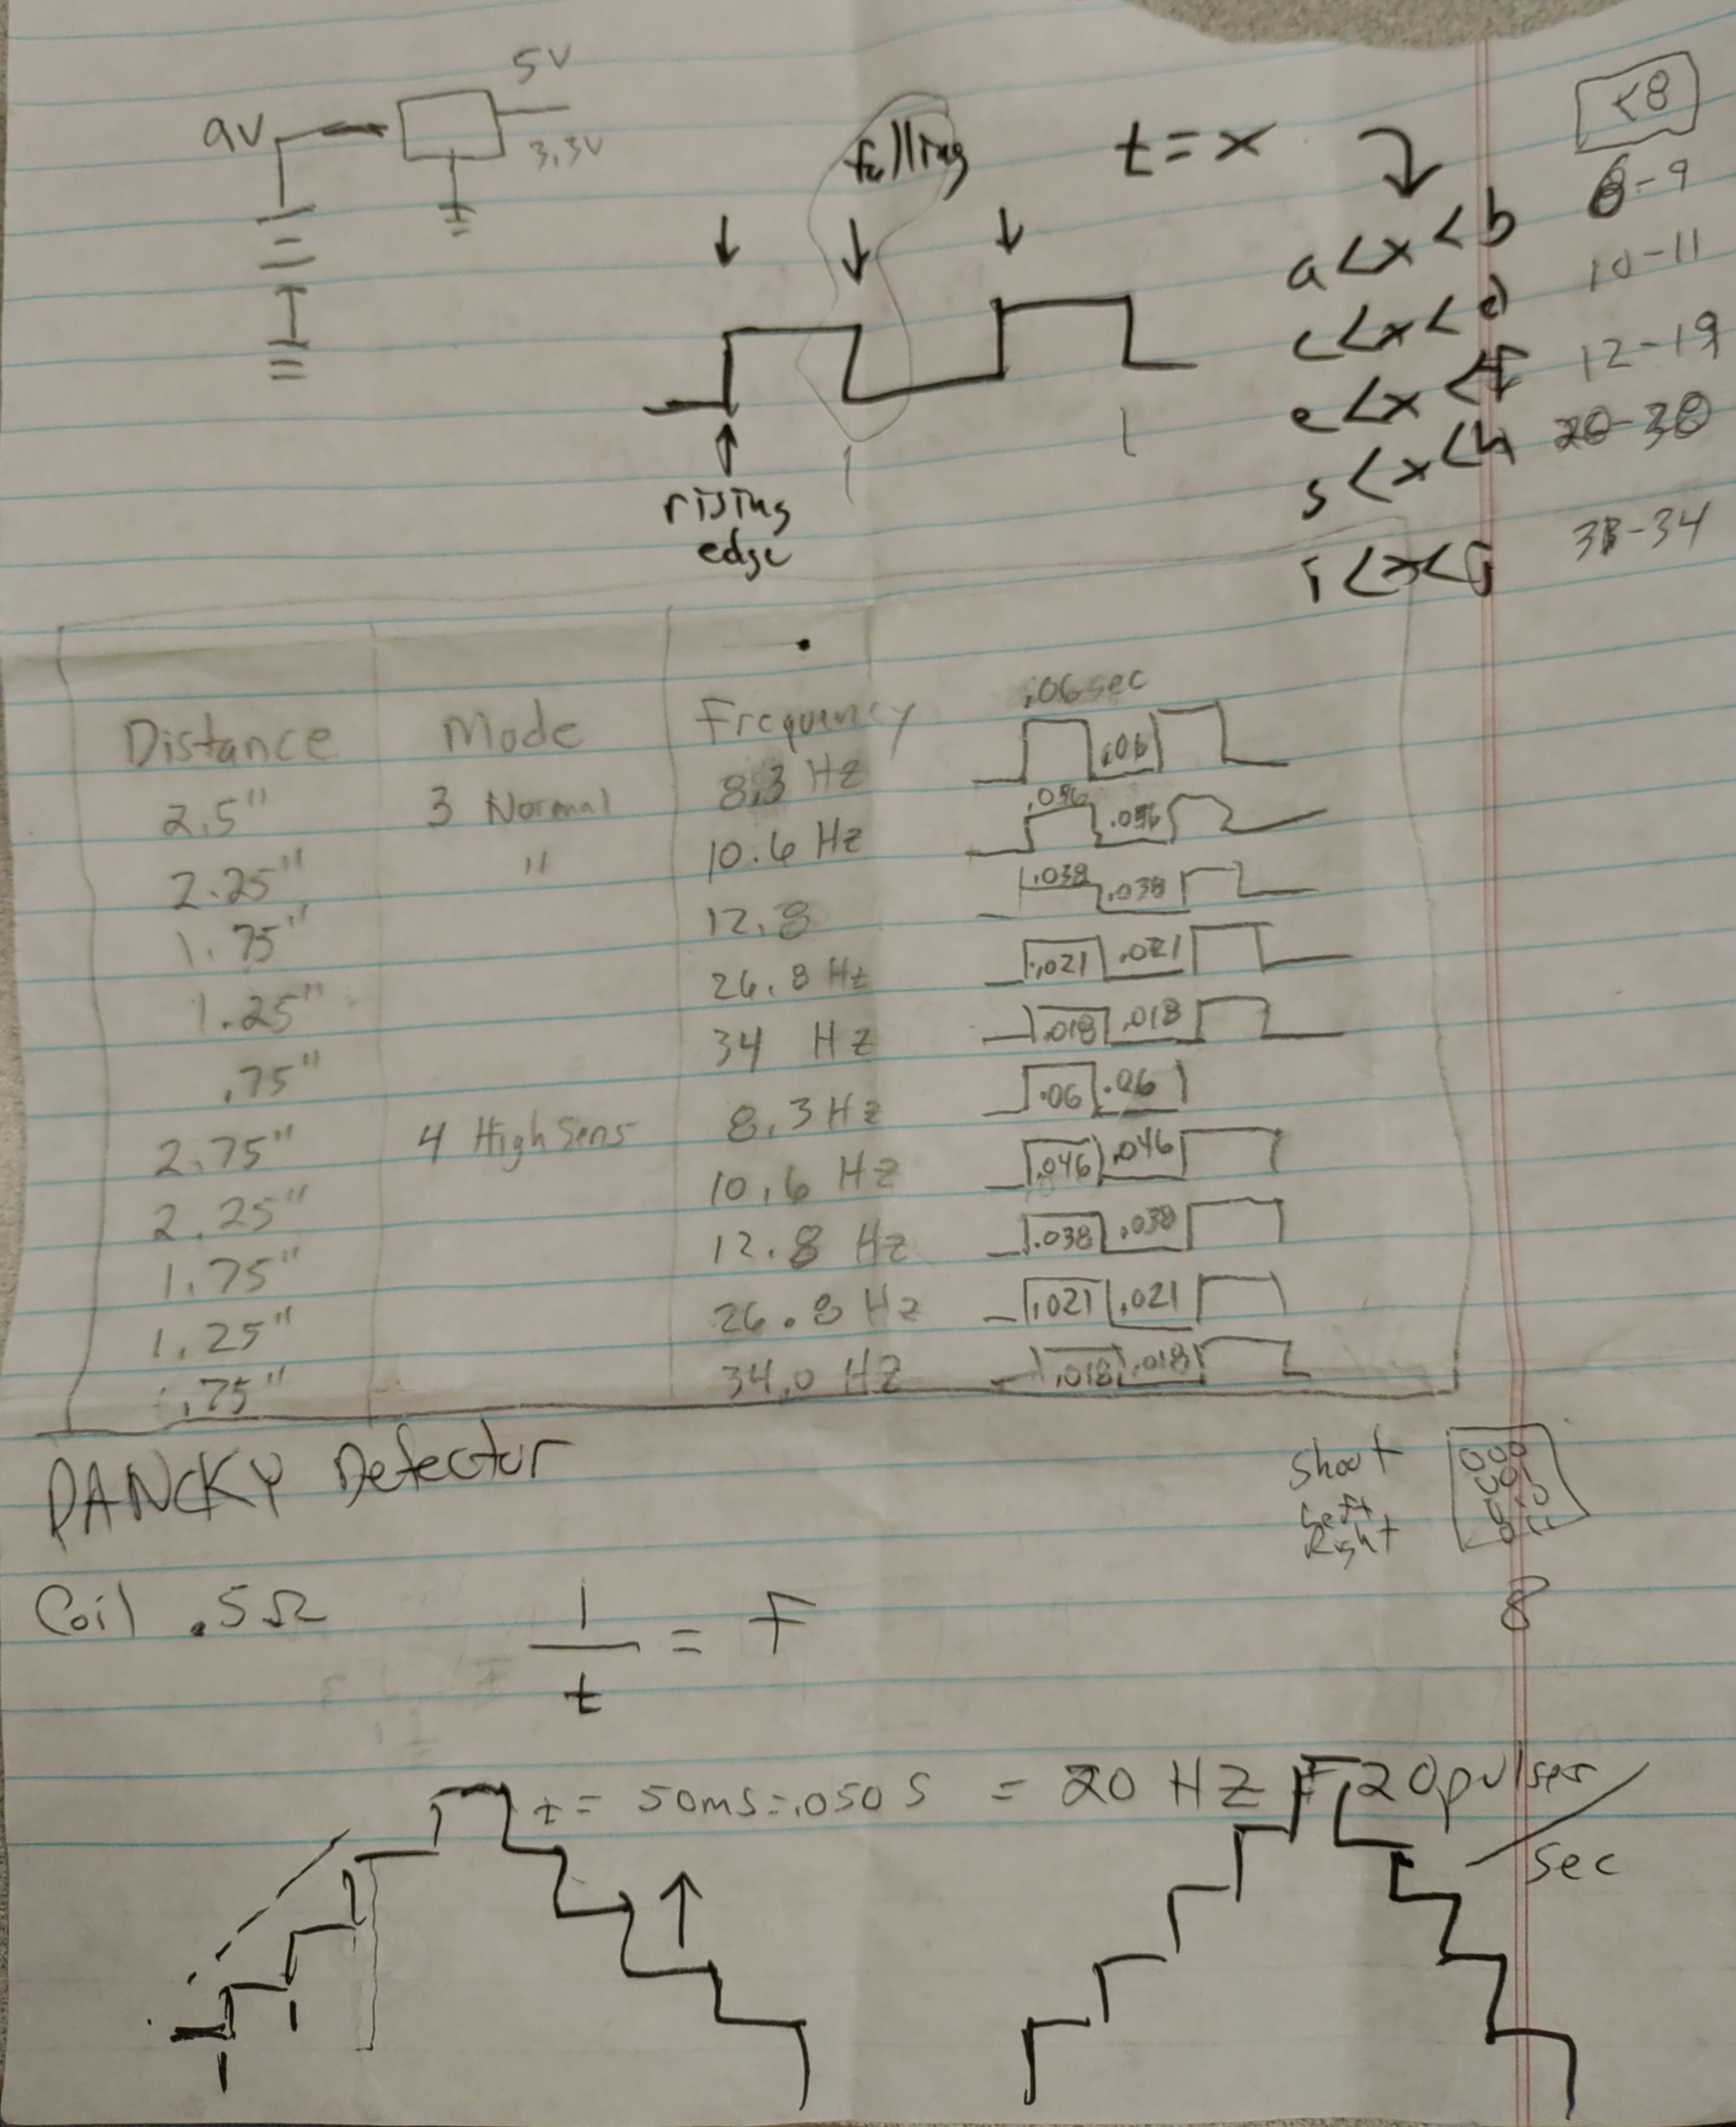 5V
9V
3.3V
falling
t=x
<8
8-9
a<x<b
10-11
c<x<d
12-19
e<x<f
20-30
g<x<h
31-34
i<x<j
rising
edge
.06sec
Distance Mode Frequency
2.5" 3 Normal 8.3 Hz .06
2.25" " 10.6 Hz .046 .046
1.75" 12.8 .038 .038
1.25" 26.8 Hz .021 .021
.75" 34 Hz .018 .018
2.75" 4 High Sens 8.3 Hz .06 .06
2.25" 10.6 Hz .046 .046
1.75" 12.8 Hz .038 .038
1.25" 26.8 Hz .021 .021
.75" 34.0 Hz .018 .018
PANCKY Detector
Shoot 000
Left 001
Right 010
011
8
Coil .5Ω
1
— = F
t
t = 50ms=.050S = 20 HZ F 20pulses
/
sec